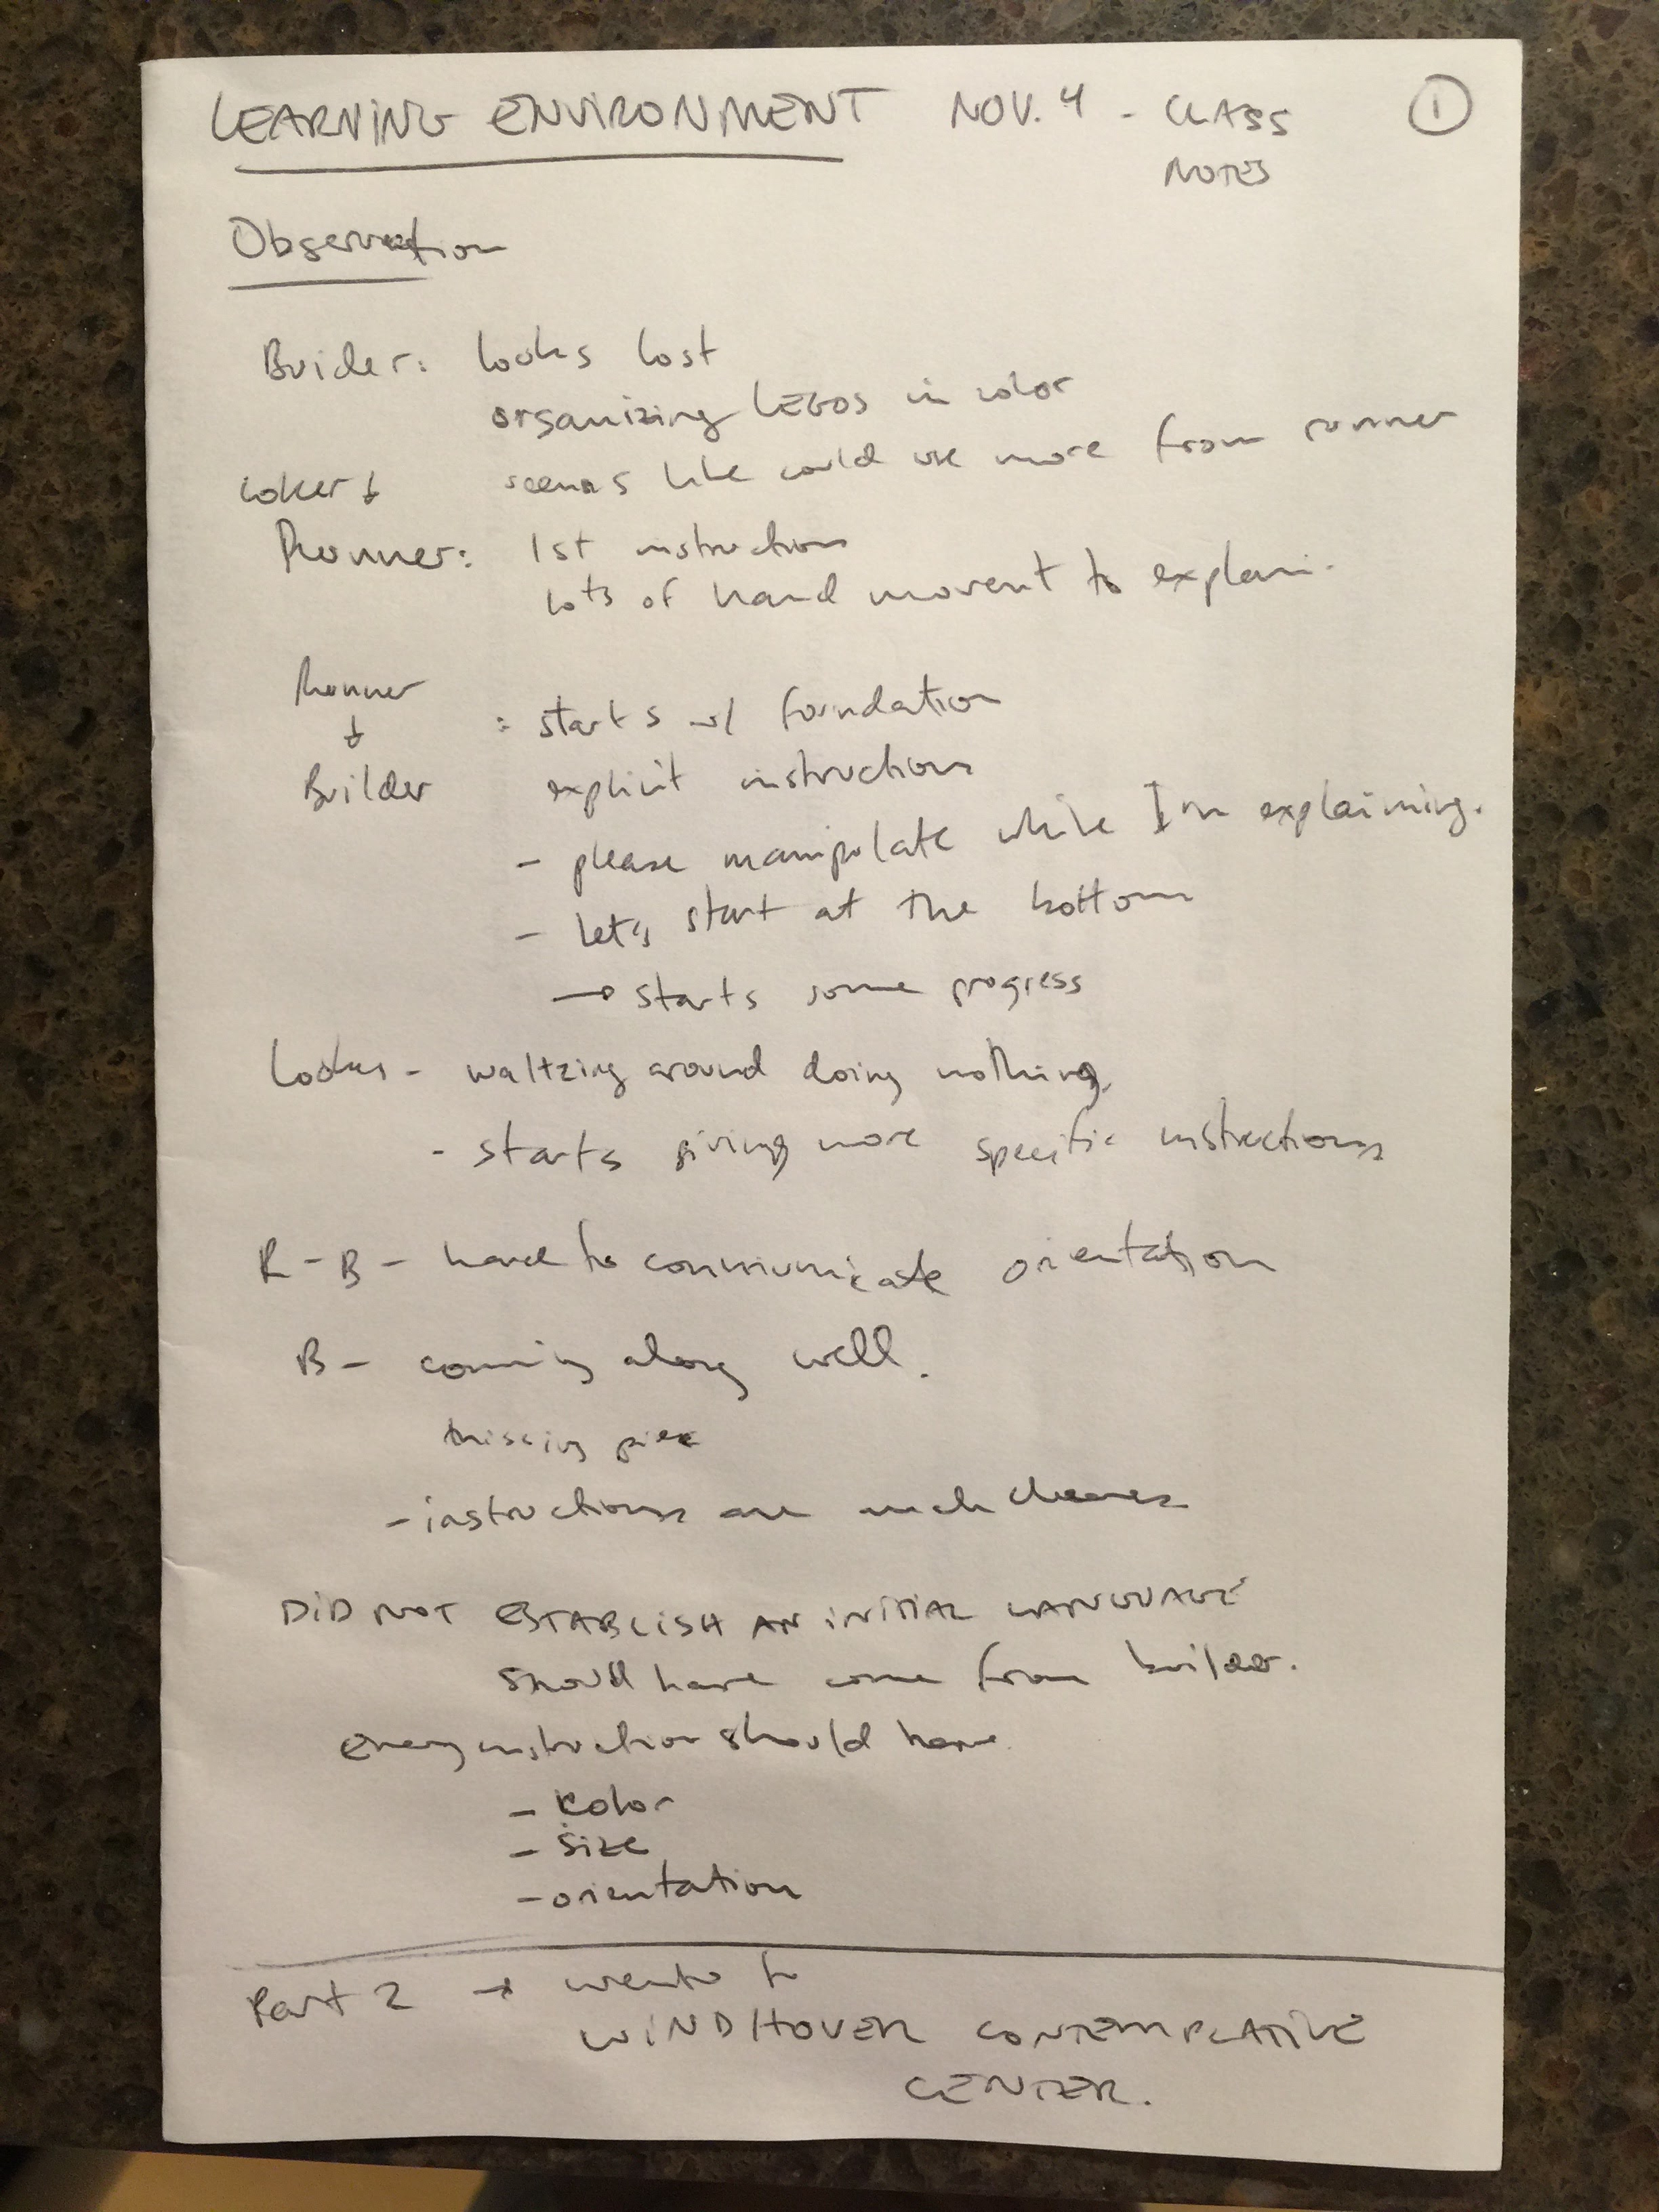 LEARNING ENVIRONMENT NOV. 4 - CLASS NOTES ①
Observation
Buider: looks lost
organizing LEGOS in color
seems like could use more from runner
Looker ↓
Runner: 1st instruction
lots of hand movent to explain.
Runner
↓
Builder
: starts w/ foundation
explicit instructions
- please manipulate while I'm explaining.
- Let's start at the bottom
→ starts some progress
Looker - waltzing around doing nothing.
- starts giving more specific instructions
R - B - hard to communicate orientation
B - coming along well.
missing piece
- instructions are much clearer
DID NOT ESTABLISH AN INITIAL LANGUAGE
should have come from builder.
every instruction should have
- color
- size
- orientation
Part 2 → went to
WINDHOVER CONTEMPLATIVE
CENTER.